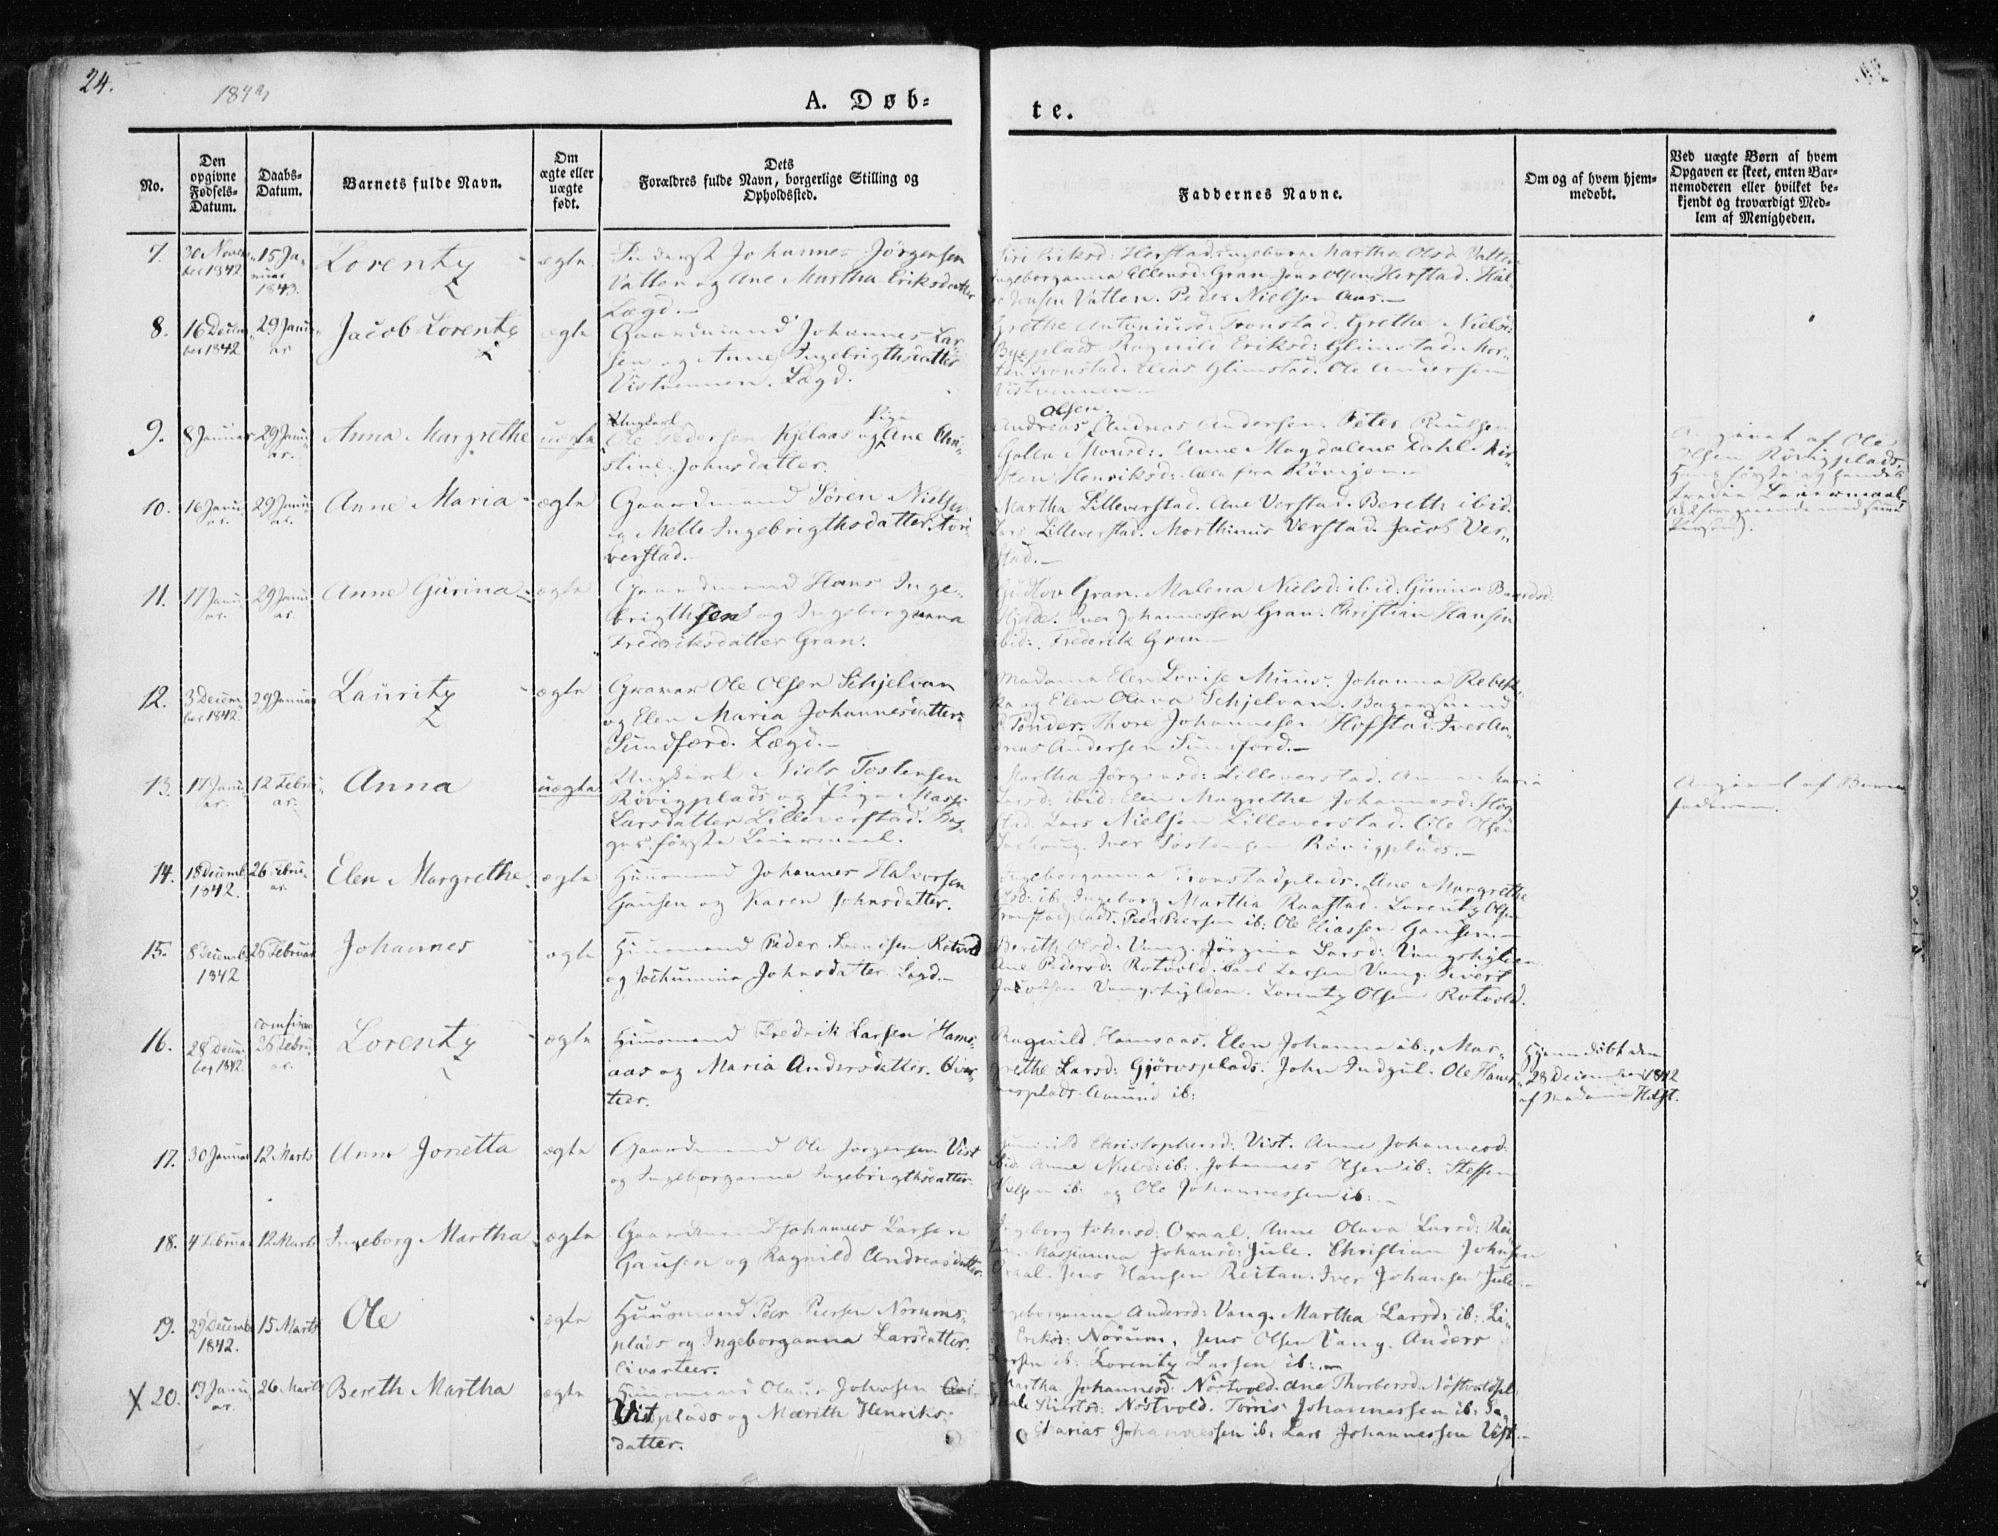 24.
1843
A. Døb-
te.
No.
Den opgivne Fødsels-Datum.
Daabs-Datum.
Barnets fulde Navn.
Om ægte eller uægte født.
Dets Forældres fulde Navn, borgerlige Stilling og Opholdssted.
Faddernes Navne.
Om og af hvem hjemmedøbt.
Ved uægte Børn af hvem Opgaven er skeet, enten Barnemoderen eller hvilket bekjendt og troværdigt Medlem af Menigheden.
7.
30 Novem-
ber 1842
15 Ja-
nuar
1843.
Lorentz
ægte
Johannes Jörgensen
Vatten og Ane Martha Eriksdatter
Lægd.
Siri Eriksd: Herstad. Martha Olsd: Vatten
Ingeborganna Ellensd: Gran. Jens Olsen Herstad. Hal-
Jensen Vatten. Peder Nielsen Aas.
8.
16 Decem-
ber 1842
29 Janu-
ar
Jacob Lorents
ægte
Gaardmand Johannes Lar-
sen og Anne Ingebrigthsdatter
Lægd.
Grethe Antoniusd: Tronstad. Grethe Nielsd:
Ragnild Eriksd: Glimstad. Mor-
ten Tronstad. Elias Glimstad. Ole Andersen
9.
8 Januar
29 Janu-
ar.
Anna Margrethe
uægte
Ungkarl
Ole Pedersen Kjelaas og Pige Ane Chri-
stine Johnsdatter.
Olsen.
Andreas Andreas Andersen. Peter Paulsen
Anne Magdalene Dahl. Kir-
sten Henriksd: alle fra
Angivet af Ole
Olsen Rövigplads.
10.
16 Janu-
ar.
29 Janu-
ar.
Anne Maria
ægte
Gaardmand Sören Nielsen
og Melle Ingebrigthsdatter
verstad.
Martha Lilleverstad. Ane Verstad. Bereth ibid.
Lars Lilleverstad. Morthinus Verstad. Jacob Ver-
stad.
11.
17 Janu-
ar.
29 Janu-
ar.
Anne Gurina
ægte
Gaardmand Hans Inge-
brigthsen og Ingeborganna
Fredriksdatter Gran.
Gran. Malena Nielsd: ibid: Gunina Baardsd:
Iver Johannessen Gran. Christian Hansen
ibid: Frederik Gran
12.
3 Decem-
ber 1842.
29 Januar
Lauritz
ægte
Graver Ole Olsen Schjelvan
og Elen Maria Johannesdatter
Sundfærd. Lægd.
Madame Elen Lovise Muus. Johanna Rebek-
ka og Elen Olava Schjelvan. Bagersvend
P. Tönder. Thore Johannesen Hofstad. Iver An-
dreas Andersen Sundfærd.
13.
17 Janu-
ar.
12 Febru-
ar.
Anna
uægte
Ungkarl Niels Tostensen
Rövigplads og Pige Massi
Larsdatter Lilleverstad. Beg-
ges förste Leiermaal.
Martha Jörgensd: Lilleverstad. Anna Maria
Larsd: ibid: Elen Magrethe Johannesd: Hog-
stad. Lars Nielsen Lilleverstad. Ole Olsen
Iver Tostensen Rövigplads.
Angivet af Barne-
faderen.
14.
18 Decemb.
1842.
26 Febru-
ar.
Elen Margrethe
ægte
Huusmand Johannes Halvorsen
Gausen og Karen Johnsdatter.
Ingeborganna Tronstadplads. Ane Margrethe
Olsd: ib: Ingeborg Martha Raastad. Lorentz Olsen
Tronstadplads. Peer Peersen ib: Ole Eliassen Gausen.
15.
8 Decemb.
1842
26 Februar
Johannes
ægte
Huusmand Peder Svendsen Rotvold
og Jochumina Johnsdatter. Lægd.
Bereth Olsd: Vang. Jörgina Larsd: Vangshylden.
Ane Pedersd: Rotvold. Carl Larsen Vang. Sivert
Jacobsen Vangshylden. Lorentz Olsen Rotvold.
16.
28 Decem-
ber 1842.
confirm.
26 Febru-
ar.
Lorentz
ægte
Huusmand Fredrik Larsen Hams-
aas og Maria Andersdatter. Qvar-
teer.
Ragnild Hamsaas. Elen Johanna ib: Mar-
grethe Larsd: Gjörvsplads. John Indgul. Ole Hams-
aasplads. Amund ib:
Hjemmedöbt den
28 December 1842
af Madame Holst.
17.
30 Januar
12 Marts
Anne Jonetta
ægte
Gaardmand Ole Jørgensen Vist
og Ingeborganne Ingebrigthsdatter.
Gunnild Christophersd: Vist. Anne Johannesd:
ibid: Anne Nielsd: ib: Johannes Olsen ib: Steffen
Nielsen ib: og Ole Johannessen ib:
18.
4 Februar
12 Marts
Ingeborg Martha
ægte
Gaardmand Johannes Larsen
Gausen og Ragnild Andreasdatter.
Ingeborg Johnsd: Oxaal. Anne Olava Larsd: Rei-
tan. Massianna Johansd: Jule. Christian Johnsen
Oxaal. Jens Hansen Reitan. Iver Johansen Jule.
19.
29 Decemb.
1842.
15 Marts
Ole
ægte
Huusmand Peer Peersen Norums-
plads og Ingeborganna Larsdatter.
Qvarteer.
Ingeborganna Andersd: Vang. Martha Larsd: ib: Li-
Eriksd: Norum. Jens Olsen Vang. Anders
Larsen ib: Lorentz Larsen ib:
X 20.
19 Janu-
ar.
26 Marts
Bereth Martha
ægte
Huusmand Olaus Johnsen
Vistplads og Mærith Henriks-
datter.
Martha Johannesd: Nöstvold. Ane Thorbersd: Nöstvoldpl.
Nöstvold. Tørris Johannessen ib: Sa-
charias Johannessen ib: Lars Johannessen Vist.